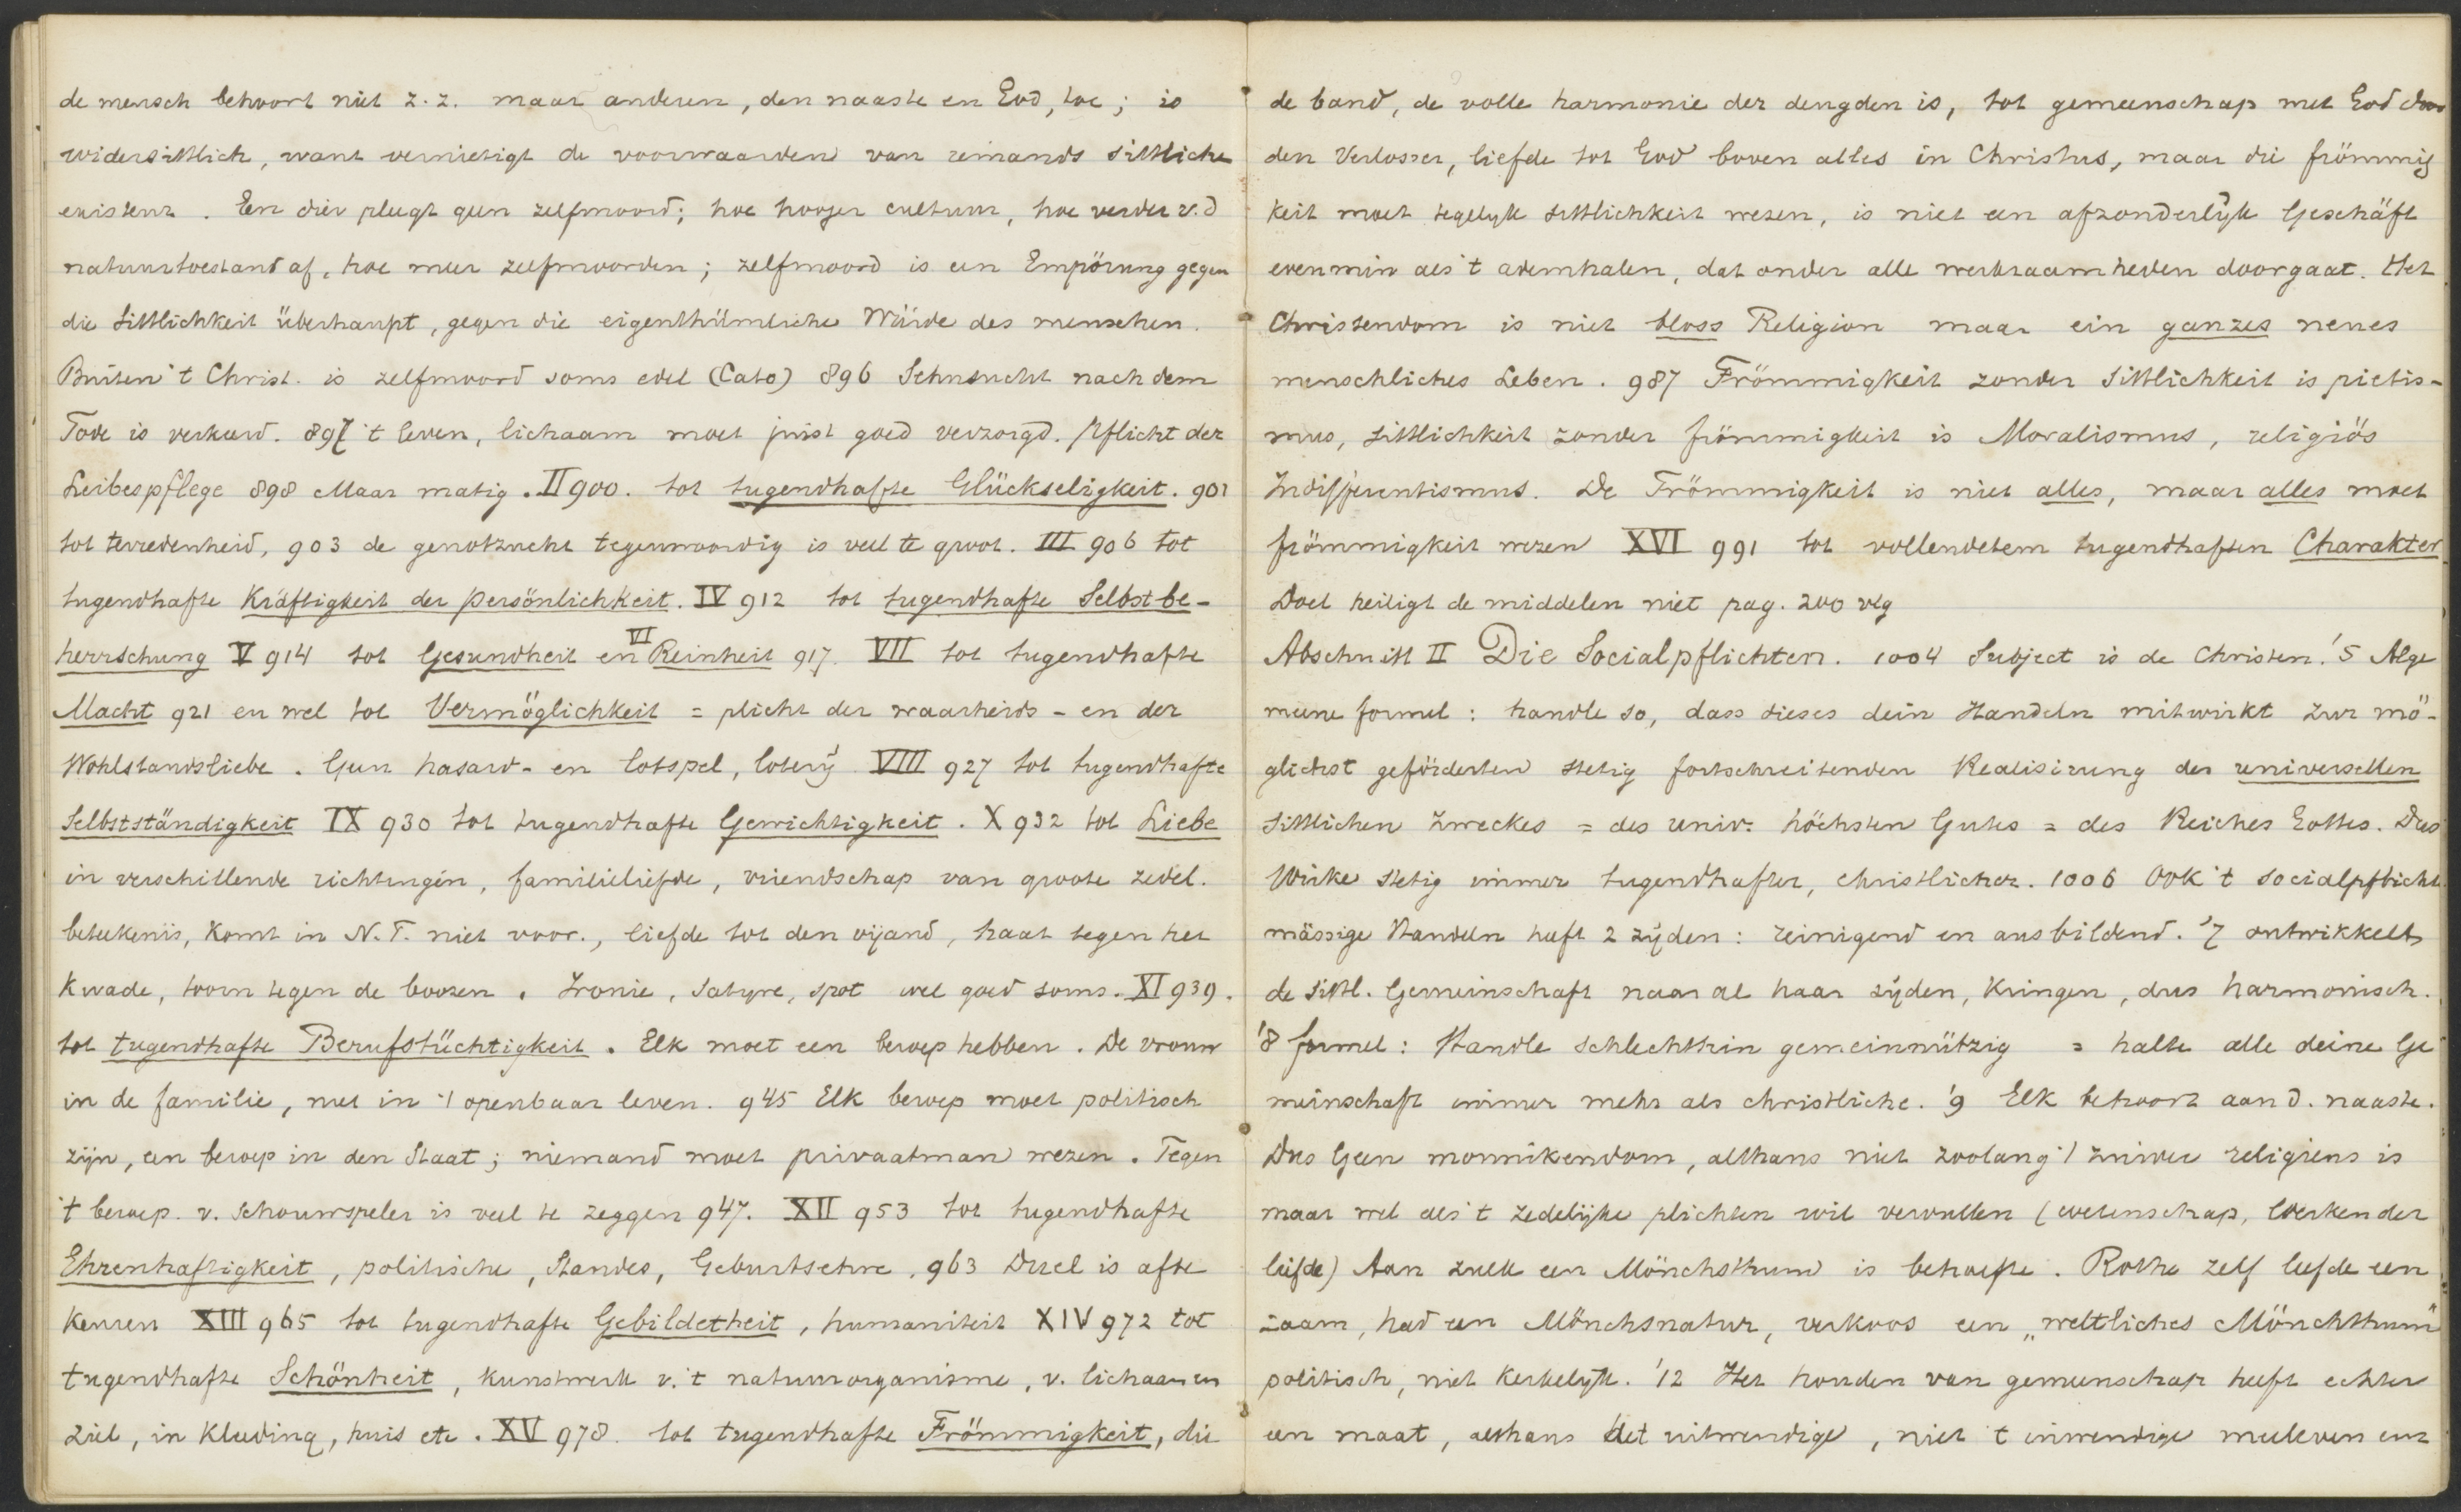 de mensch behoort niet z.z. maar anderen, den naaste en God, toe; is
widersittlich, want vernietigt de voorwaarden van iemands sittliche
existenz. Een dier pleegt geen zelfmoord; hoe hooger cultuur, hoe verder v.d
natuurtoestand af, hoe meer zelfmoorden; zelfmoord is een Empörung gegen
die Sittlichkeit überhaupt, gegen die eigenthümliche Würde des menschen.
Buiten 't Christ. is zelfmoord soms edel (Cato) 896 Sehnsucht nach dem
Tode is verkeerd. 897 't leven, lichaam moet juist goed verzorgd. Pflicht der
Leibespflege 898 Maar matig. II 900. tot tugendhafte Glückseligkeit. 901
tot tevredenheid, 903 de genotzucht tegenwoordig is veel te groot. III 906 tot
tugendhafte Kräftigkeit der Persönlichkeit. IV 912 tot tugendhafte Selbstbe-
herrschung V 914 tot Gesundheit en VI Reinheit 917. VII tot tugendhafte
Macht 921 en wel tot Vermöglichkeit = plicht der waarheids- en der
Wohlstandsliebe. Geen hasard- en lotspel, loterij VIII 927 tot tugendhafte
Selbstständigkeit IX 930 tot tugendhafte Gewichtigkeit. X 932 tot Liebe
in verschillende richtingen, familieliefde, vriendschap van groote zedel.
beteekenis, komt in N.T. niet voor., liefde tot den vijand, haat tegen het
kwade, toorn tegen de boozen. Ironie, Satyre, spot wel goed soms. XI 939.
tot tugendhafte Berufstüchtigkeit. Elk moet een beroep hebben. De vrouw
in de familie, niet in 't openbaar leven. 945 Elk beroep moet politisch
zijn, een beroep in den Staat; niemand moet privaatman wezen. Tegen
't beroep v. Schouwspeler is veel te zeggen 947. XII 953 tot tugendhafte
Ehrenhaftigkeit, politische, Standes, Geburtsehre, 963 Duel is afte
keuren XIII 965 tot tugendhafte Gebildetheit, humaniteit XIV 972 tot
tugendhafte Schönheit, kunstwerk v. 't natuurorganisme, v. lichaam en
ziel, in kleeding, huis etc. XV 978. tot tugendhafte Frömmigkeit, die
de band, de volle harmonie der deugden is, tot gemeenschap met God door
den Verlosser, liefde tot God boven alles in Christus, maar die frömmig
keit moet tegelijk sittlichkeit wezen, is niet een afzonderlijk Geschäft
evenmin als 't ademhalen, dat onder alle werkzaamheden doorgaat. Het
Christendom is niet bloss Religion maar ein ganzes neues
menschliches Leben. 987 Frömmigkeit zonder Sittlichkeit is pietis-
mus, sittlichkeit zonder frömmigkeit is Moralismus, religiös
Indifferentismus. De Frömmigkeit is niet alles, maar alles moet
frömmigkeit wezen XVI 991 tot vollendetem tugendhaften Charakter
Doel heiligt de middelen niet pag. 200 vlg
Abschnitt II Die Socialpflichten. 1004 Subject is de Christen. '5 Alge
meene formel: handle so, dass dieses dein Handeln mitwirkt zur mö-
glichst geförderten stetig fortschreitenden Realisirung des universellen
sittlichen Zweckes = des univ. höchsten Gutes = des Reiches Gottes. Dus
Wirke stetig immer tugendhafter, christlicher. 1006 Ook 't socialpflicht
mässige Handeln heeft 2 zijden: reinigend en ausbildend. '7 ontwikkelt
de sittl. Gemeinschaft naar al haar zijden, kringen, dus harmonisch.
'8 formel: Handle schlechthin gemeinnützig = halte alle deine Ge
meinschaft immer mehr als christliche. '9 Elk behoort aan d. naaste.
Dus Geen monnikendom, althans niet zoolang 't zuiver religieus is
maar wel als 't zedelijke plichten wil vervullen (wetenschap, werken der
liefde) Aan zulk een Mönchsthum is behoefte. Rothe zelf leefde een
zaam, had een Mönchsnatur, verkoos een "weltliches Mönchthum"
politisch, niet kerkelijk. '12 Het houden van gemeenschap heeft echter
een maat, althans het uitwendige, niet 't inwendige meeleven enz